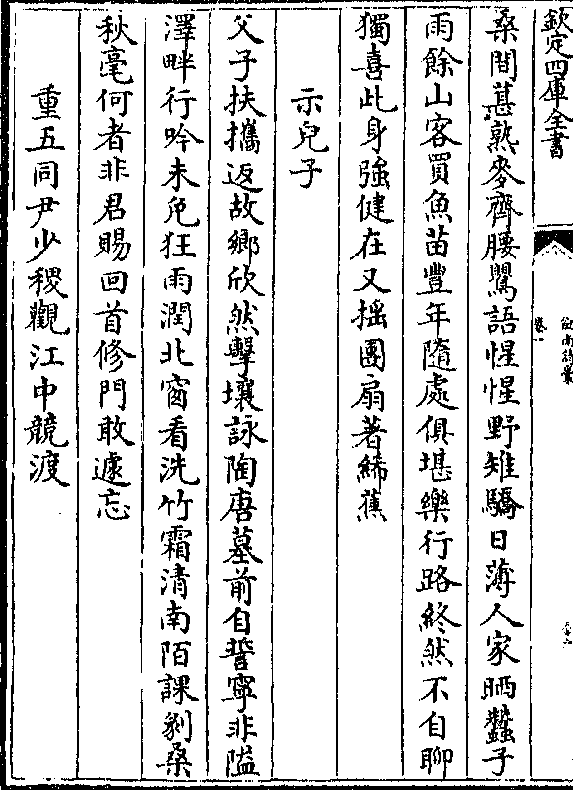 欽定四庫全書
劍南詩藁
卷一
桑間葚熟麥齊腰鸎語惺惺野雉驕日薄人家晒蠶子
雨餘山客買魚苗豐年隨處俱堪樂行路終然不自聊
獨喜此身強健在又揺團扇著絺蕉
示兒子
父子扶攜返故鄉欣然擊壤詠陶唐墓前自誓寧非隘
澤畔行吟未免狂雨潤北窗看洗竹霜清南陌課剝桑
秋毫何者非君賜回首修門敢遽忘
重五同尹少稷觀江中競渡